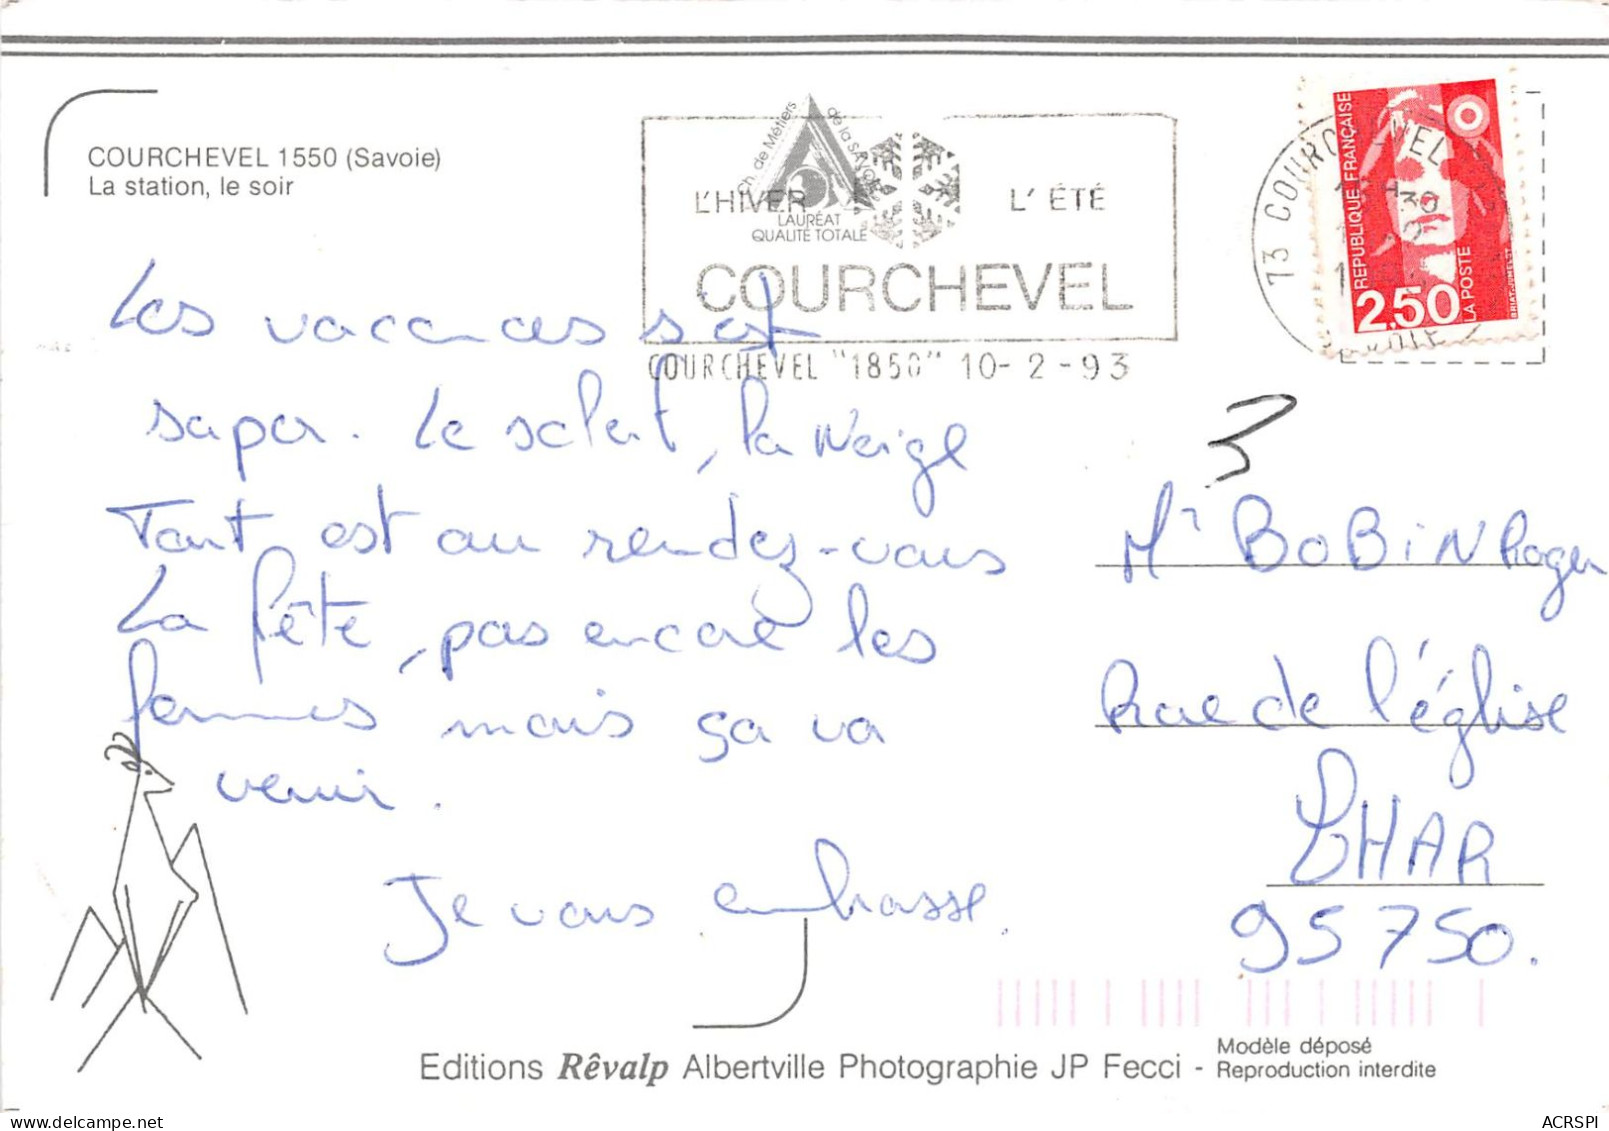 COURCHEVEL 1550 (Savoie)
La station, le soir
Ch. de Métiers de la SAVOIE
LAURÉAT
QUALITÉ TOTALE
L'HIVER L'ÉTÉ
COURCHEVEL
COURCHEVEL "1850" 10-2-93
73 COURCHEVEL
REPUBLIQUE FRANÇAISE
2,50
LA POSTE
Les vacances s est
super. Le soleil, la Neige
Tout est au rendez-vous
La fête, pas encore les
femmes mais ça va
venir.
Je vous embrasse.
3
Mr BOBIN Roger
Rue de l'église
CHAR
95750.
Editions Rêvalp Albertville Photographie JP Fecci -
Modèle déposé
Reproduction interdite
ACRSPI